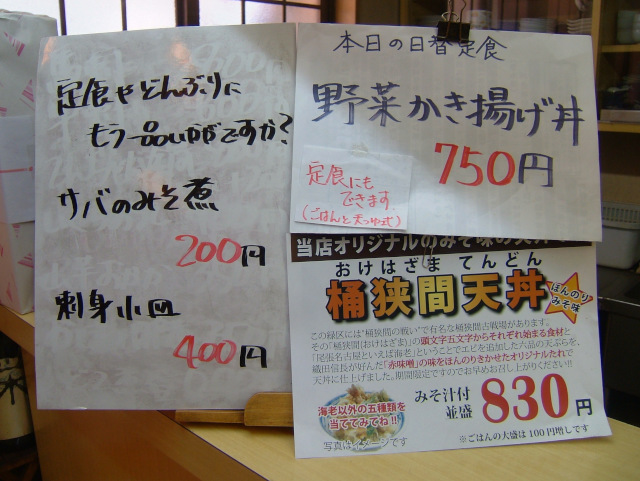 定食やどんぶりに
もう一品いかがですか?
サバのみそ煮
200円
刺身小皿
400円
本日の日替定食
野菜かき揚げ丼
750円
定食にも
できます
(ごはんと天つゆ式)
当店オリジナルのみそ味の天丼
おけはざま てんどん
桶狭間天丼
ほんのり
みそ味
この緑区には"桶狭間の戦い"で有名な桶狭間古戦場があります。
その「桶狭間(おけはざま)」の頭文字五文字からそれぞれ始まる食材と
「尾張名古屋といえば海老」ということでエビを追加した六品の天ぷらを、
織田信長が好んだ「赤味噌」の味をほんのりきかせたオリジナルたれで
天丼に仕上げました。期間限定ですのでお早めお召し上がりください!!
海老以外の五種類を
当ててみてね!!
写真はイメージです
みそ汁付
並盛
830円
※ごはんの大盛は100円増しです